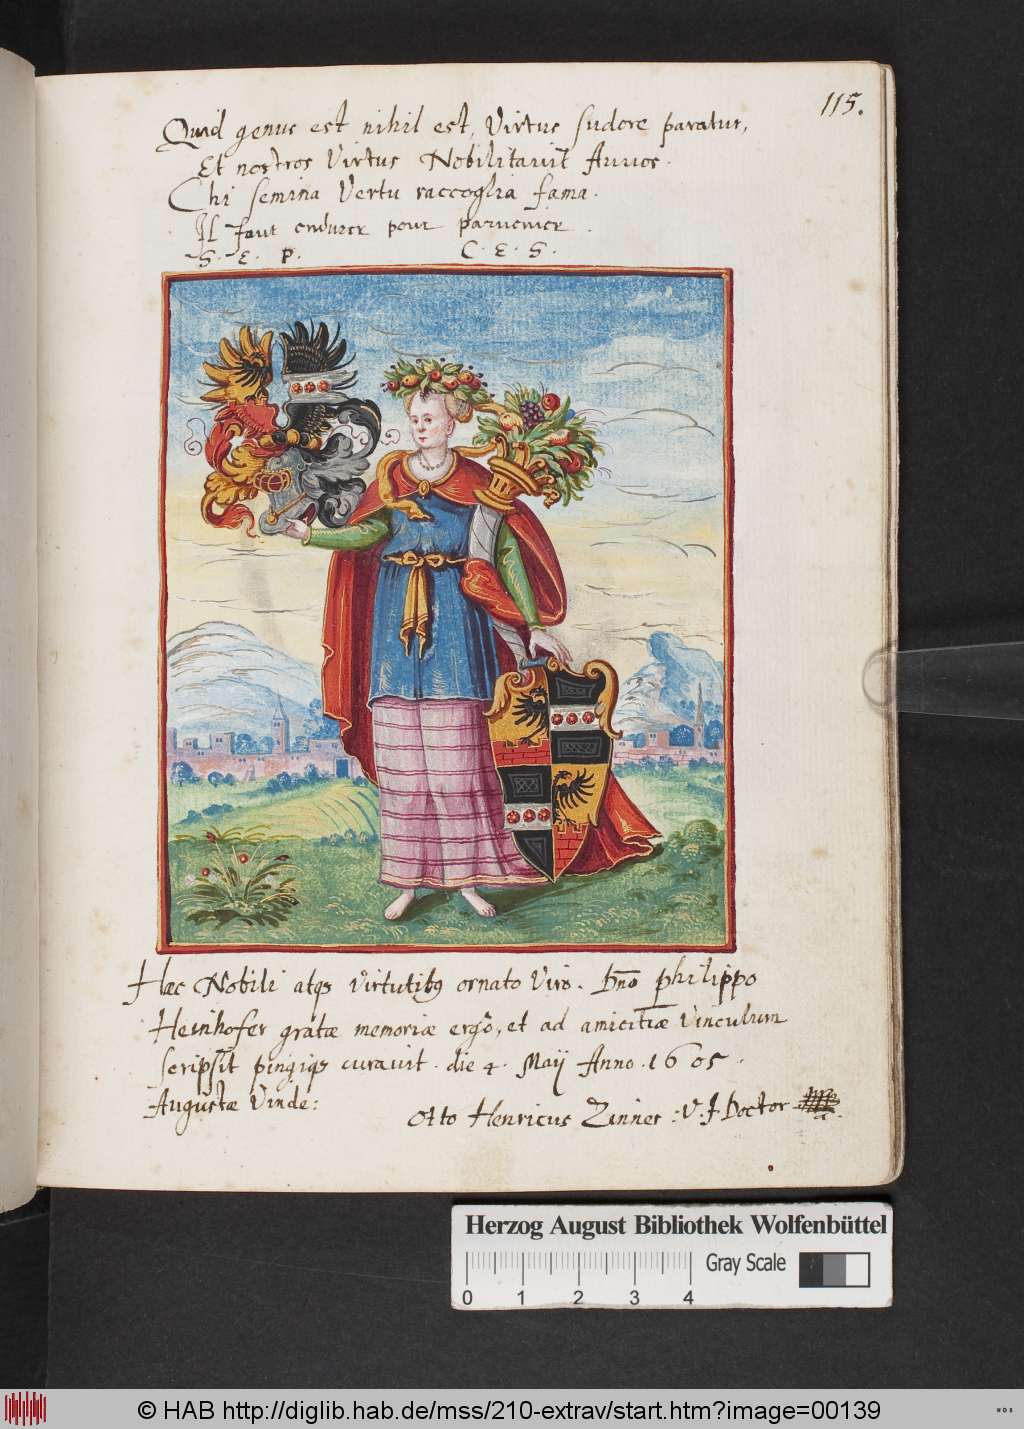 115.
Quid genus est nihil est, Virtus sudore paratur,
Et nostros Virtus Nobilitavit Avvos.
Chi semina Vertu raccoglia fama.
Il faut endurer pour parvenier.
S. E. P. C. E. S.
Haec Nobili atqs virtutibq ornato Viro. Dno philippo
Heinhofer gratae memoriae ergo, et ad amicitiae Vinculum
scripsit pingiqs curavit. die 4. Maij Anno. 1605.
Augustae Vinde:
Otto Henricus Zinner V. J Doctor
Herzog August Bibliothek Wolfenbüttel
Gray Scale
0 1 2 3 4
© HAB http://diglib.hab.de/mss/210-extrav/start.htm?image=00139
HAB